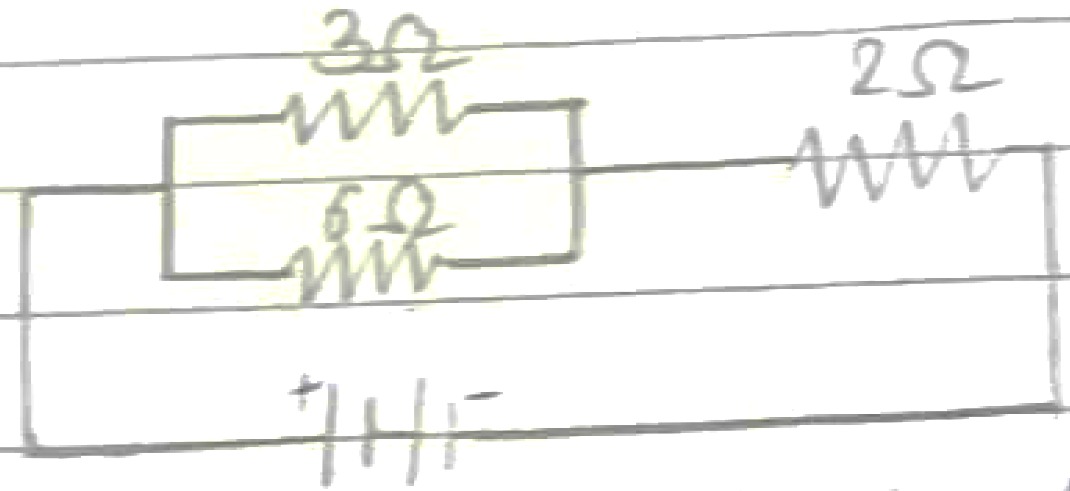 3Ω
2Ω
6Ω
+ -